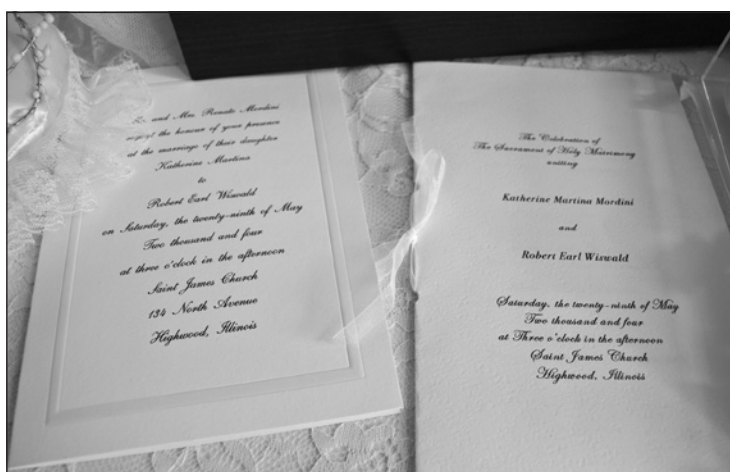 and Mrs. Renato Mordini
request the honour of your presence
at the marriage of their daughter
Katherine Martina
to
Robert Earl Wiswald
on Saturday, the twenty-ninth of May
Two thousand and four
at three o'clock in the afternoon
Saint James Church
134 North Avenue
Highwood, Illinois
The Celebration of
The Sacrament of Holy Matrimony
uniting
Katherine Martina Mordini
and
Robert Earl Wiswald
Saturday, the twenty-ninth of May
Two thousand and four
at Three o'clock in the afternoon
Saint James Church
Highwood, Illinois